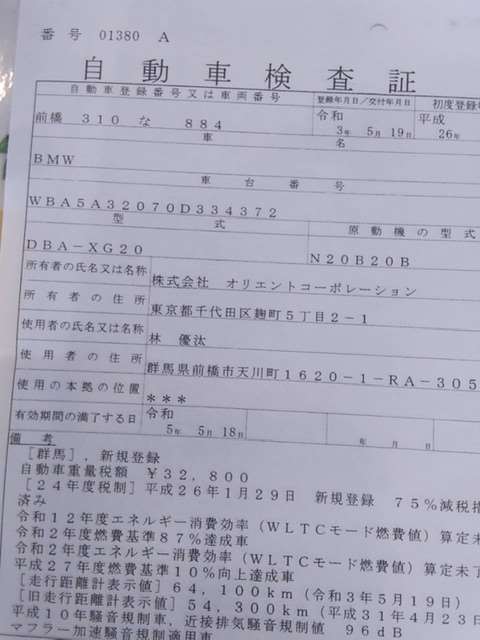 番号 01380 A
自動車検査証
自動車登録番号又は車両番号 登録年月日/交付年月日 初度登録
前橋 310 な 884 令和 3年 5月 19日 平成 26年
車名
BMW
車台番号
WBA5A32070D334372
型式 原動機の型式
DBA-XG20 N20B20B
所有者の氏名又は名称 株式会社 オリエントコーポレーション
所有者の住所 東京都千代田区麹町5丁目2-1
使用者の氏名又は名称 林 優汰
使用者の住所 群馬県前橋市天川町1620-1-RA-305
使用の本拠の位置 ***
有効期間の満了する日 令和 5年 5月 18日 年 月 日
備考
[群馬],新規登録
自動車重量税額 ¥32,800
[24年度税制]平成26年1月29日 新規登録 75%減税措
済み
令和12年度エネルギー消費効率(WLTCモード燃費値)算定未
令和2年度燃費基準87%達成車
令和2年度エネルギー消費効率(WLTCモード燃費値)算定未了
平成27年度燃費基準10%向上達成車
[走行距離計表示値]64,100km(令和3年5月19日)
[旧走行距離計表示値]54,300km(平成31年4月23日
平成10年騒音規制車,近接排気騒音規制値 96dB
マフラー加速騒音規制適用車